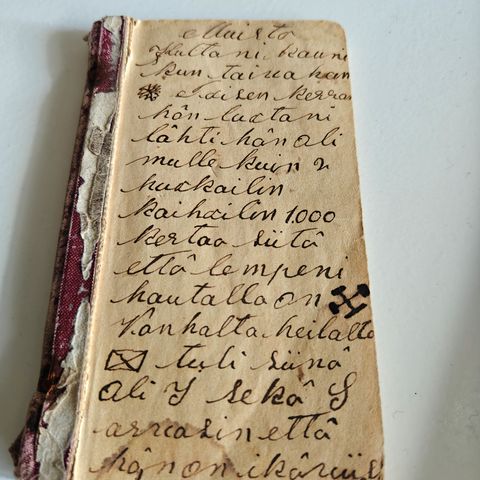 Muisto
Kultani kauni
kun taiva han
Toisen kerran
hân luotani
lâhti hân oli
mulle kuin
huokailin
kaihoilin 1.000
kertaa siitâ
ettâ lempeni
hautalla on
Vanhalta heilalta
tuli siinâ
oli I sekâ S
arvasin ettâ
hân on ikâvüs